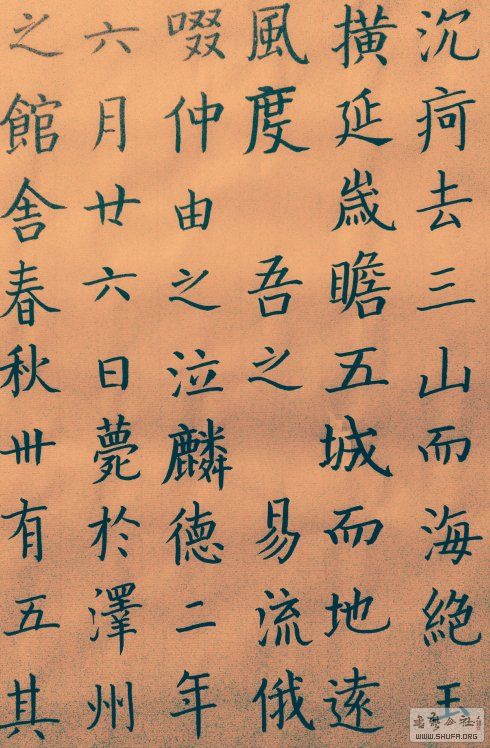 沉疴去三山而海絶王
橫延歲瞻五城而地遠
風度 吾之 易流俄
啜仲由之泣麟德二年
六月廿六日薨於澤州
之館舍春秋卅有五其
WWW.SHUFA.ORG